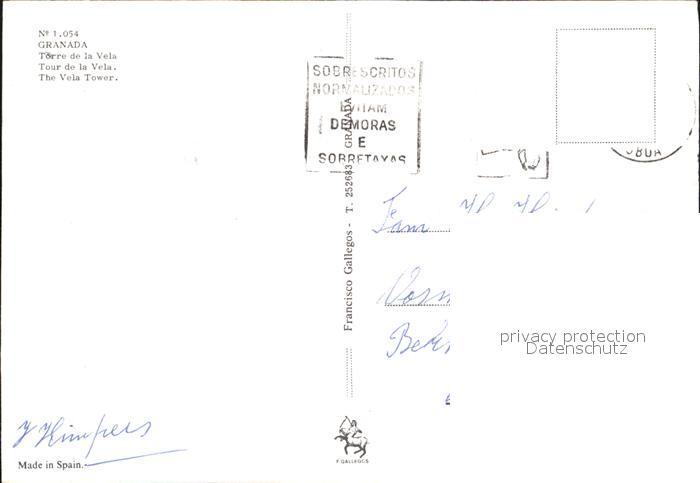 Nº 1.054
GRANADA
Torre de la Vela
Tour de la Vela.
The Vela Tower.
SOBRESCRITOS
NORMALIZADOS
EVITAM
DEMORAS
E
SOBRETAXAS
Francisco Gallegos - T. 252683 GRANADA
Fam
privacy protection
Datenschutz
Made in Spain.
F. GALLEGOS